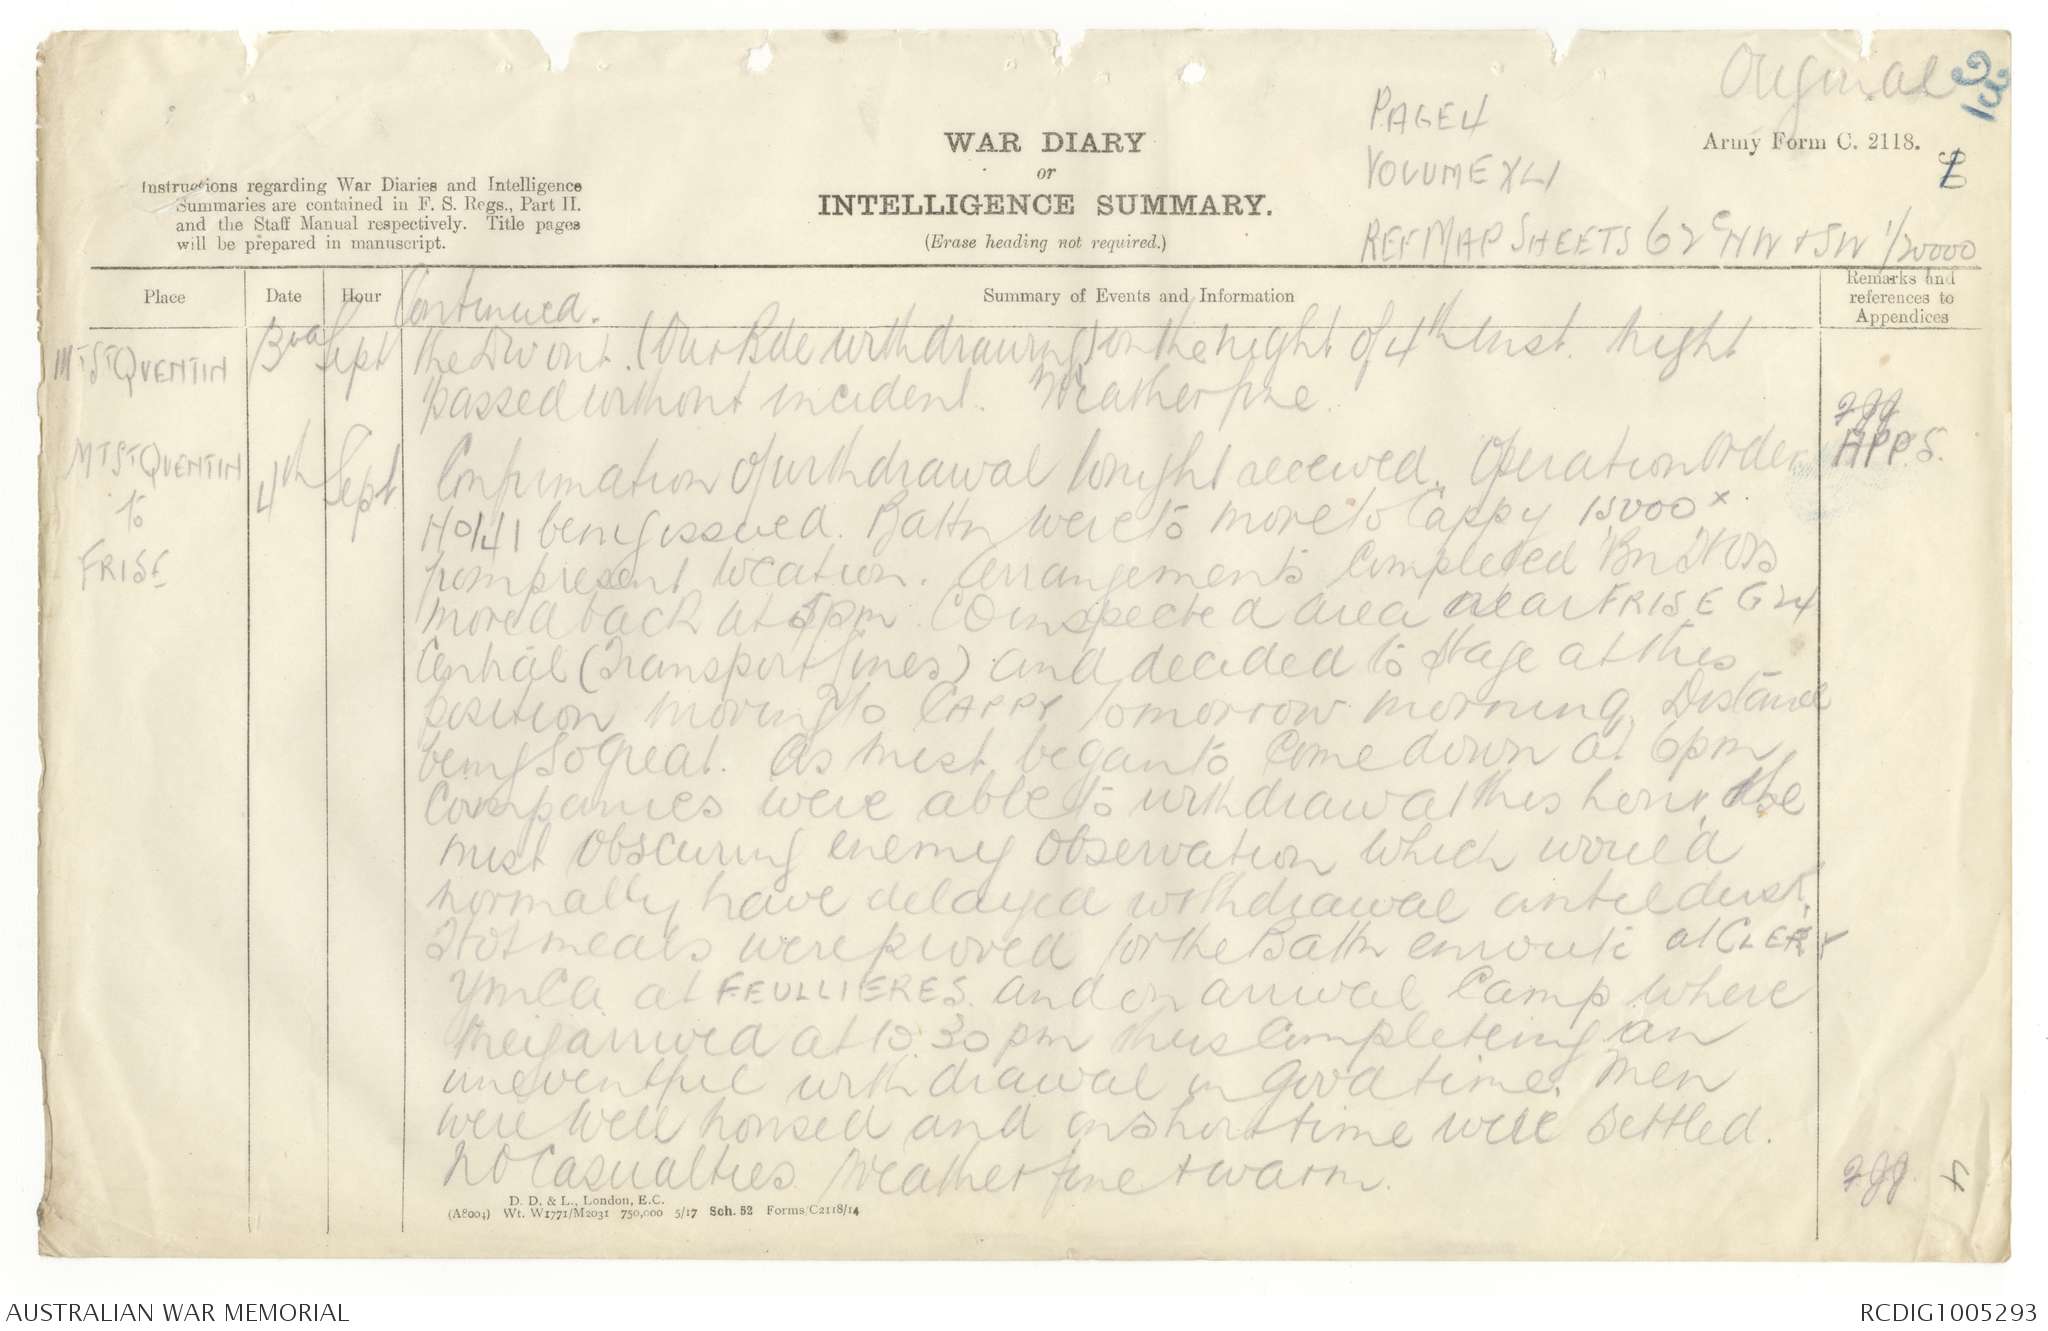 Original
PAGE 4
VOLUME XLI
REF MAP SHEETS 62c NW + SW 1/20000
Army Form C. 2118.
WAR DIARY
or
INTELLIGENCE SUMMARY.
(Erase heading not required.)
Instructions regarding War Diaries and Intelligence
Summaries are contained in F. S. Regs., Part II.
and the Staff Manual respectively. Title pages
will be prepared in manuscript.
Place
Date
Hour
Summary of Events and Information
Remarks and
references to
Appendices
Continued.
MT ST QUENTIN 3rd Sept the Div out. (Our Bde withdrawing) on the night of 4th inst. Night
passed without incident. Weather fine.
MT ST QUENTIN
to
FRISE
4th Sept
Confirmation of withdrawal tonight received. Operation Order
No 141 being issued. Battn were to move to Cappy 15000x
from present location. Arrangements completed Bn Hdqs
moved back at 5pm. CO inspected area near FRISE G 24
Central (Transport Lines) and decided to stage at this
position moving to CAPPY tomorrow morning. Distance
being so great. As mist began to come down at 6pm
Companies were able to withdraw at this hour, the
mist obscuring enemy observation which would
normally have delayed withdrawal until dusk.
Hot meals were proved for the Battn enroute at CLERY
YMCA at FEULLIERES and on arrival Camp where
they arrived at 10.30 pm thus completeing an
uneventful withdrawal in good time. Men
were well housed and in short time were settled.
No Casualties. Weather fine + warm.
APP 5.
D. D. & L., London, E.C.
(A8004) Wt. W1771/M2031 750,000 5/17 Sch. 52 Forms/C2118/14
AUSTRALIAN WAR MEMORIAL
RCDIG1005293